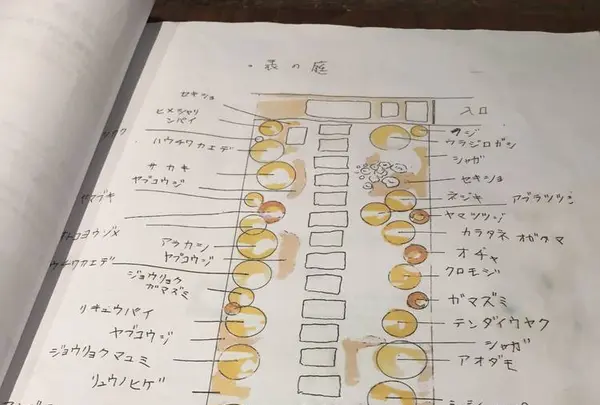 ・表の庭
セキショ
ヒメシャリンバイ
ハウチワカエデ
サカキ
ヤブコウジ
ヤマブキ
アラカシ
ヤブコウジ
ジョウリョク
ガマズミ
リキュウバイ
ヤブコウジ
ジョウリョクマユミ
リュウノヒゲ
入口
ウラジロガシ
シャガ
セキショ
ネジキ アブラツツジ
ヤマツツジ
カラタネ オガタマ
オチャ
クロモジ
ガマズミ
テンダイウヤク
シャガ
アオダモ